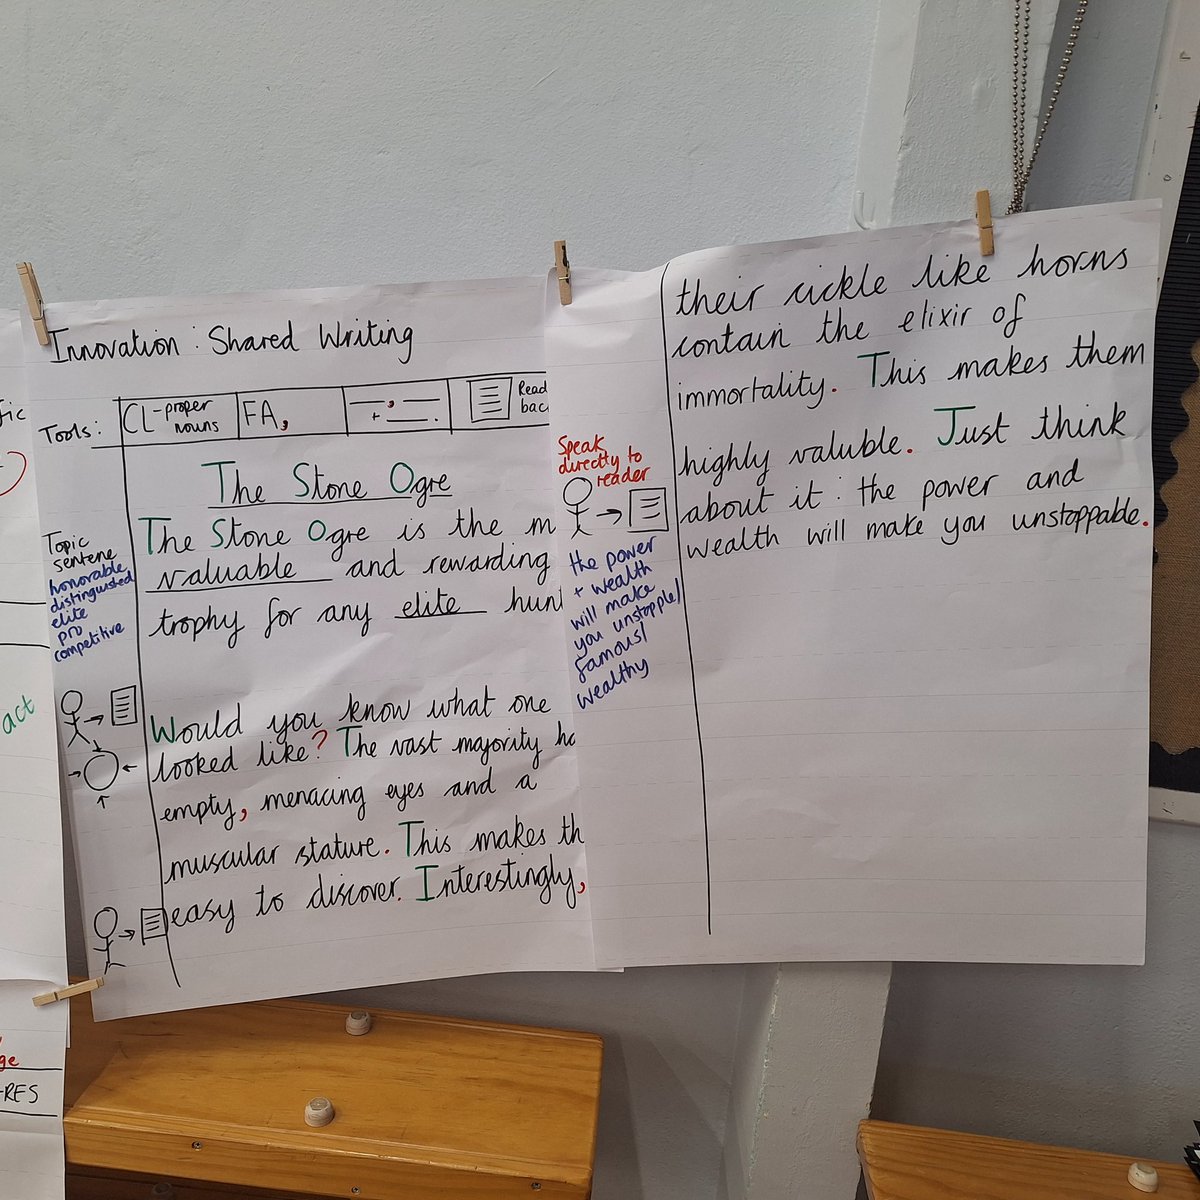 Innovation : Shared Writing
Tools:
CL-proper
nouns
FA,
, 
+ .
Read
bac
The Stone Ogre
The Stone Ogre is the m
valuable and rewarding
trophy for any elite hunt
Topic
sentene
honorable
distinguisted
elite
pro
competitive
Would you know what one
looked like? The vast majority ha
empty, menacing eyes and a
muscular stature. This makes th
easy to discover. Interestingly,
their sickle like horns
contain the elixir of
immortality. This makes them
highly valuble. Just think
about it : the power and
wealth will make you unstoppable.
Speak
directly to
reader
the power
+ wealth
will make
you unstopple/
famous/
wealthy
fic
act
ge
-RES